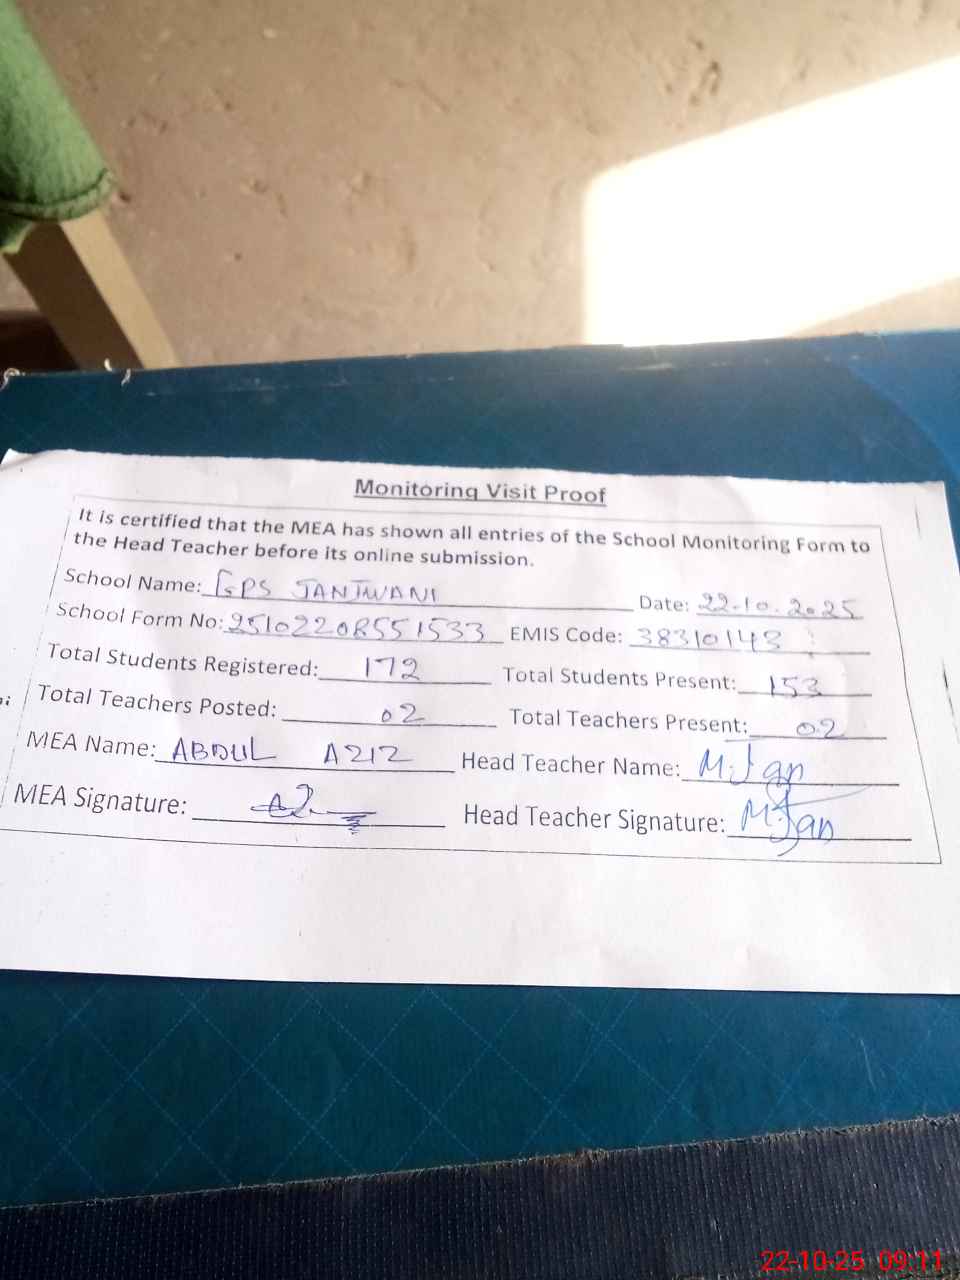 Monitoring Visit Proof
It is certified that the MEA has shown all entries of the School Monitoring Form to
the Head Teacher before its online submission.
School Name: GPS JANJWANI Date: 22.10.2025
School Form No: 25102208551533 EMIS Code: 38310143
Total Students Registered: 172 Total Students Present: 153
Total Teachers Posted: 02 Total Teachers Present: 02
MEA Name: ABDUL AZIZ Head Teacher Name: M.Jan
MEA Signature: Head Teacher Signature: M.Jan
22-10-25 09:11